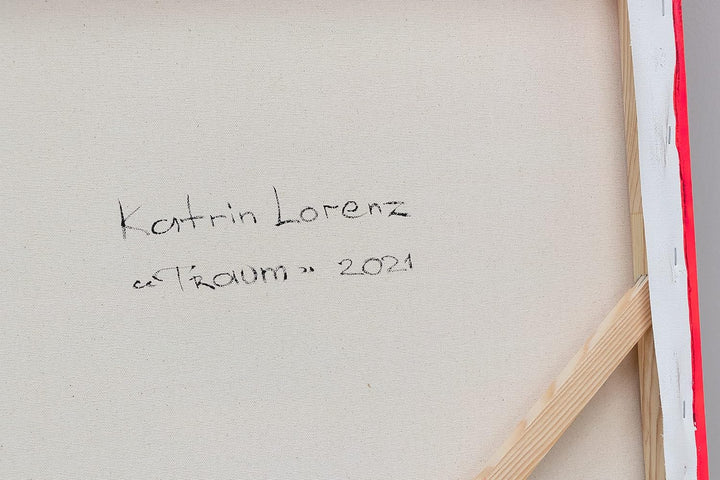 Katrin Lorenz
“Traum” 2021